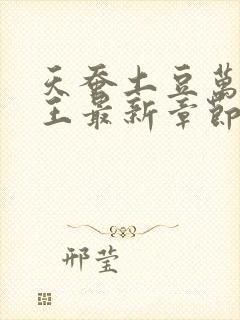 天蚕土豆萬
王最新章節
邢莹